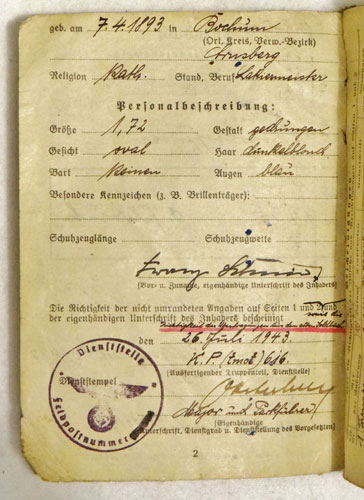 geb. am 7.4.1893 in Bochum
(Ort, Kreis, Verw.-Bezirk)
Arnsberg
Religion kath. Stand, Beruf Lakiermeister
Personalbeschreibung:
Größe 1,72 Gestalt gedrungen
Gesicht oval Haar dunkelblond
Bart keinen Augen blau
Besondere Kennzeichen (z. B. Brillenträger):
Schuhzeuglänge Schuhzeugweite
Franz
(Vor- u. Zuname, eigenhändige Unterschrift des Inhabers)
Die Richtigkeit der nicht umrandeten Angaben auf Seiten 1 und 2 und
der eigenhändigen Unterschrift des Inhabers bescheinigt sowie die
Richtigkeit der Übertragungen aus dem alten Soldbuch
den 26. Juli 1943
H.K.P. (mot) 616.
(Ausfertigender Truppenteil, Dienststelle)
Dienststempel
Dienststelle
Feldpostnummer
Major und Parkführer
(Eigenhändige
Unterschrift, Dienstgrad u. Dienststellung des Vorgesetzten)
2